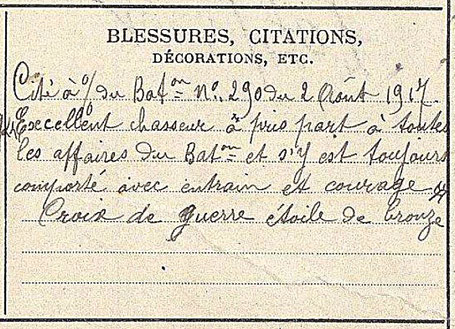 BLESSURES, CITATIONS,
DÉCORATIONS, ETC.
Cité à l'o/ du Bat.on N.o 290 du 2 Août 1917.
"Excellent chasseur a pris part à toutes
les affaires du Bat.on et s'y est toujours
comporté avec entrain et courage"
Croix de guerre étoile de bronze